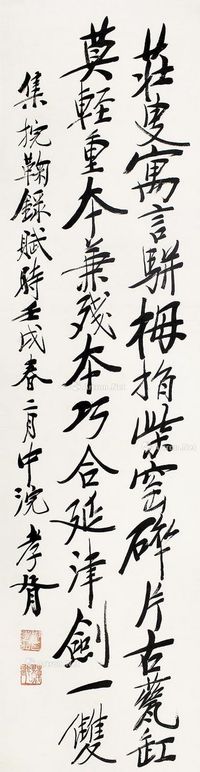 莊叟寓言駢拇指柴窑碎片古甆缸
莫輕重本兼殘本巧合延津劍一雙
集挽鞠錄賦時壬戌春二月中浣 孝胥